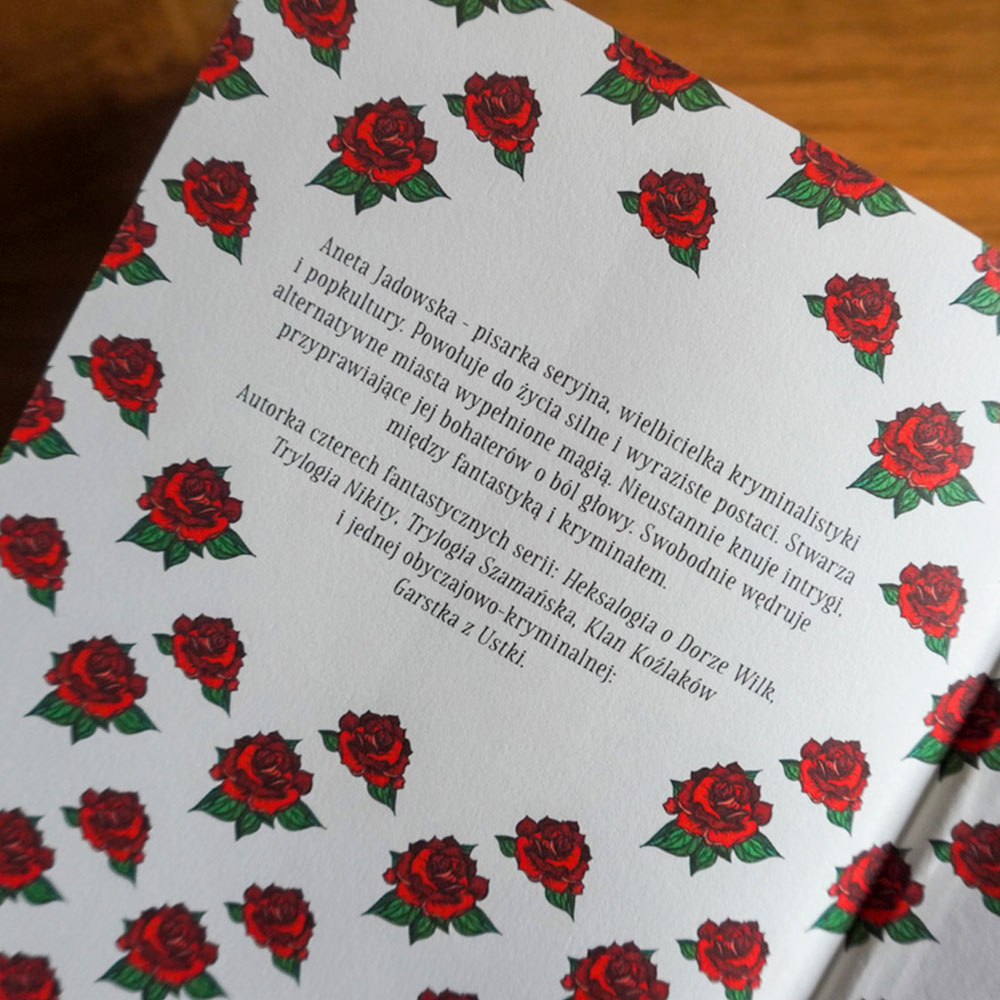 Aneta Jadowska - pisarka seryjna, wielbicielka kryminalistyki
i popkultury. Powołuje do życia silne i wyraziste postaci. Stwarza
alternatywne miasta wypełnione magią. Nieustannie knuje intrygi,
przyprawiające jej bohaterów o ból głowy. Swobodnie wędruje
między fantastyką i kryminałem.
Autorka czterech fantastycznych serii: Heksalogia o Dorze Wilk,
Trylogia Nikity, Trylogia Szamańska, Klan Koźlaków
i jednej obyczajowo-kryminalnej:
Garstka z Ustki.